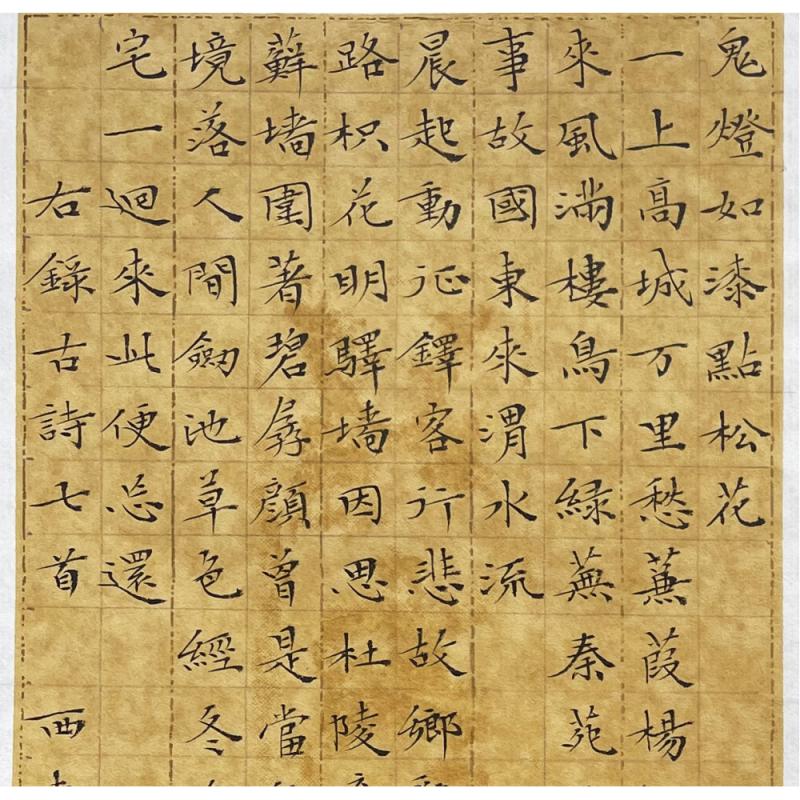 鬼燈如漆點松花
一上高城万里愁蒹葭楊
來風滿樓鳥下綠蕪秦苑
事故國東來渭水流
晨起動征鐸客行悲故鄉
路枳花明驛墙因思杜陵
蘚墙圍著碧孱顏曾是當
境落人間劒池草色經冬
宅一迴來此便忘還
右錄古詩七首 西